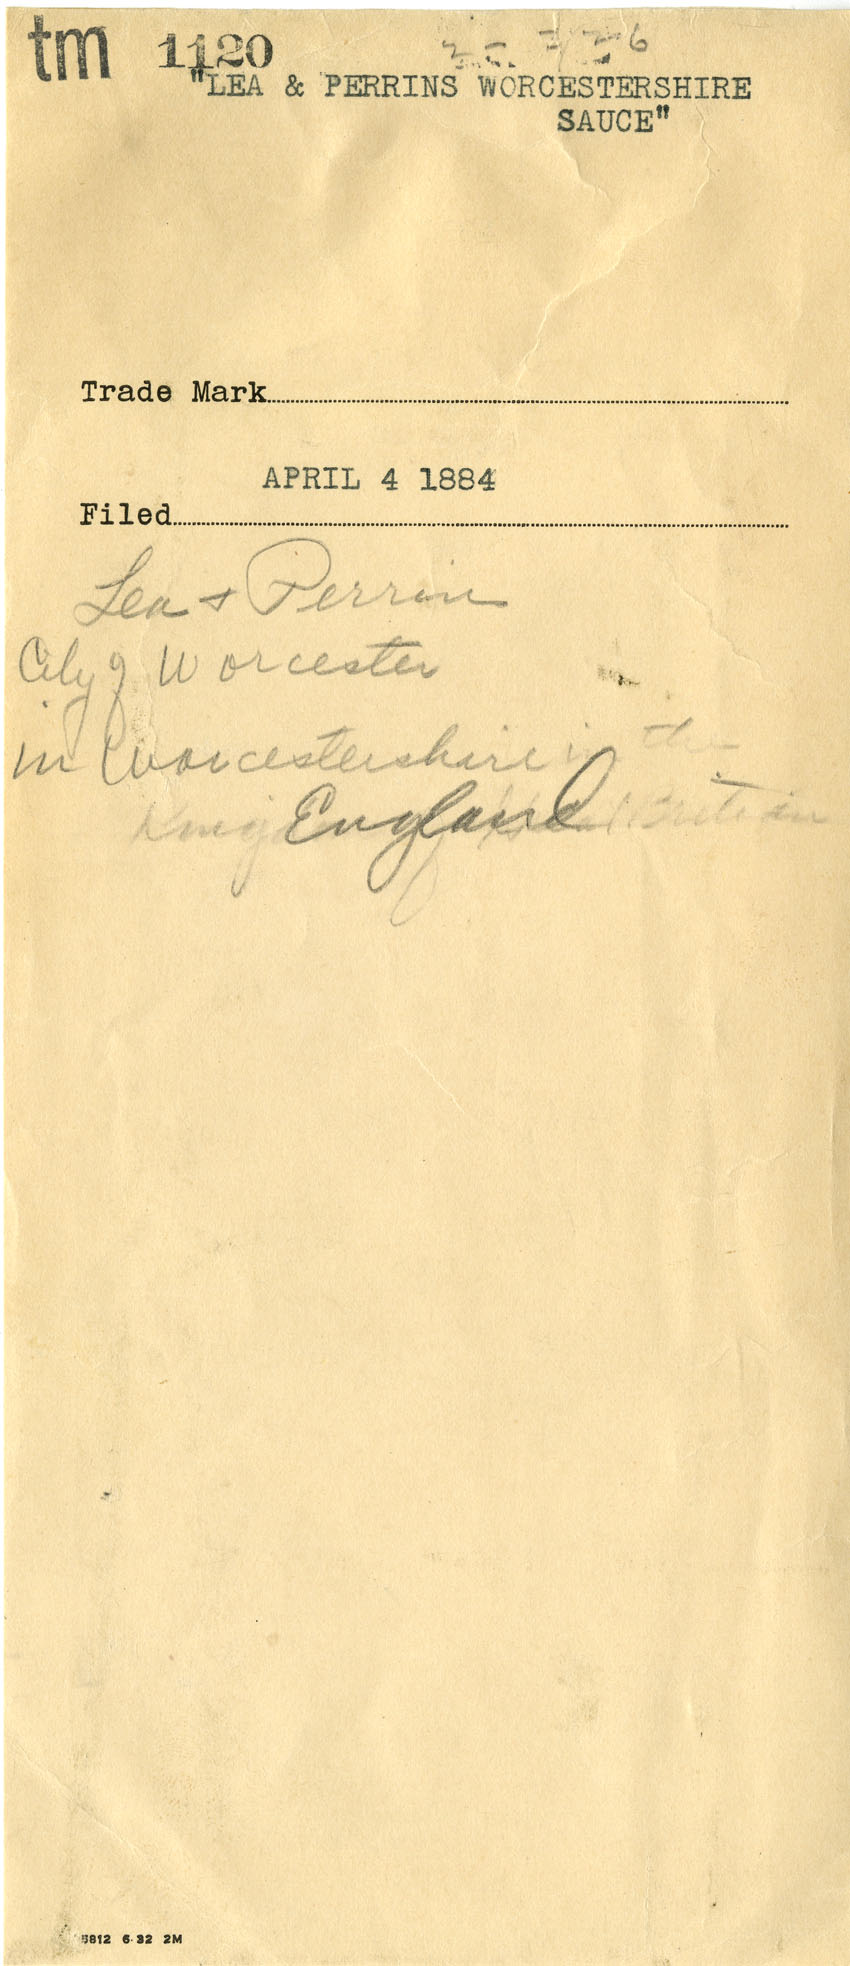 tm 1120
"LEA & PERRINS WORCESTERSHIRE
SAUCE"
Trade Mark
APRIL 4 1884
Filed
Lea & Perrin
City of Worcester
in Worcestershire in the
England Britain
5812 6-32 2M